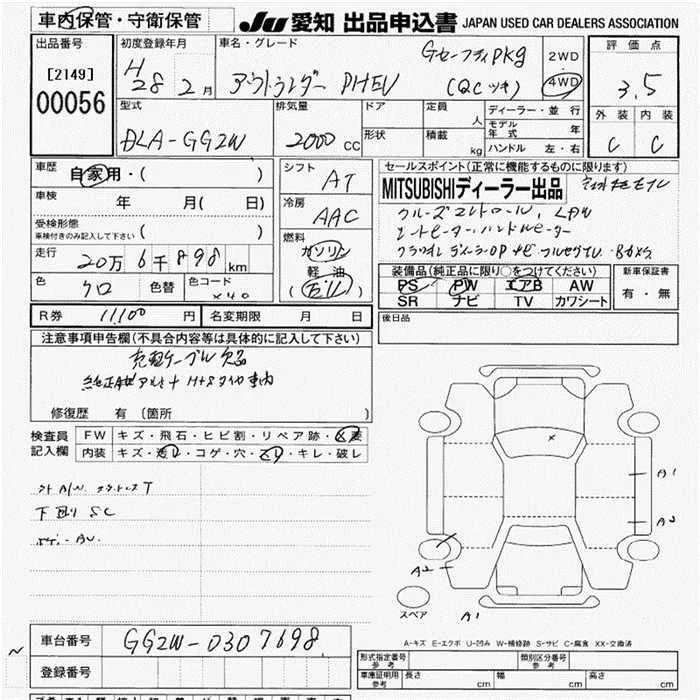 車内保管・守衛保管
JU 愛知 出品申込書 JAPAN USED CAR DEALERS ASSOCIATION
出品番号
[2149]
00056
初度登録年月
H28 2月
車名・グレード
アウトランダー PHEV
Gセーフティpkg
(QCツキ)
2WD
4WD
評価点
3.5
外装 内装
C C
型式
DLA-GG2W
排気量
2000 CC
ドア
定員
人
形状
積載
kg
ディーラー・並行
モデル年式 年
ハンドル 左・右
車歴
自家用・( )
車検
年 月( 日)
受検形態
車検付きのみ記入して下さい
( )
走行
20万6千898 km
色
クロ
色替
色コード
X40
シフト
AT
冷房
AAC
燃料
ガソリン
軽油
( )
セールスポイント(正常に機能するものに限ります)
MITSUBISHIディーラー出品
クルーズコントロール、LDW
シートヒーター、ハンドルヒーター
装備品(純正品に限り〇をつけてください)
PS PW エアB AW
SR ナビ TV カワシート
新車保証書
有・無
R券 11,100 円
名変期限 月 日
後日品
注意事項申告欄(不具合内容等は具体的に記入して下さい)
充電ケーブル欠品
修復歴 有 〔箇所 〕
検査員
記入欄
FW キズ・飛石・ヒビ割・リペア跡・X要
内装 キズ・汚レ・コゲ・穴・スレ・キレ・破レ
下廻り SC
A1
A2
A2
A1
スペア
A-キズ E-エクボ U-凹み W-補修跡 S-サビ C-腐食 XX-交換済
車台番号
GG2W-0307698
登録番号
形式指定番号
参考
類別区分番号
参考
車庫証明用
参考
長さ cm 幅 cm 高さ cm